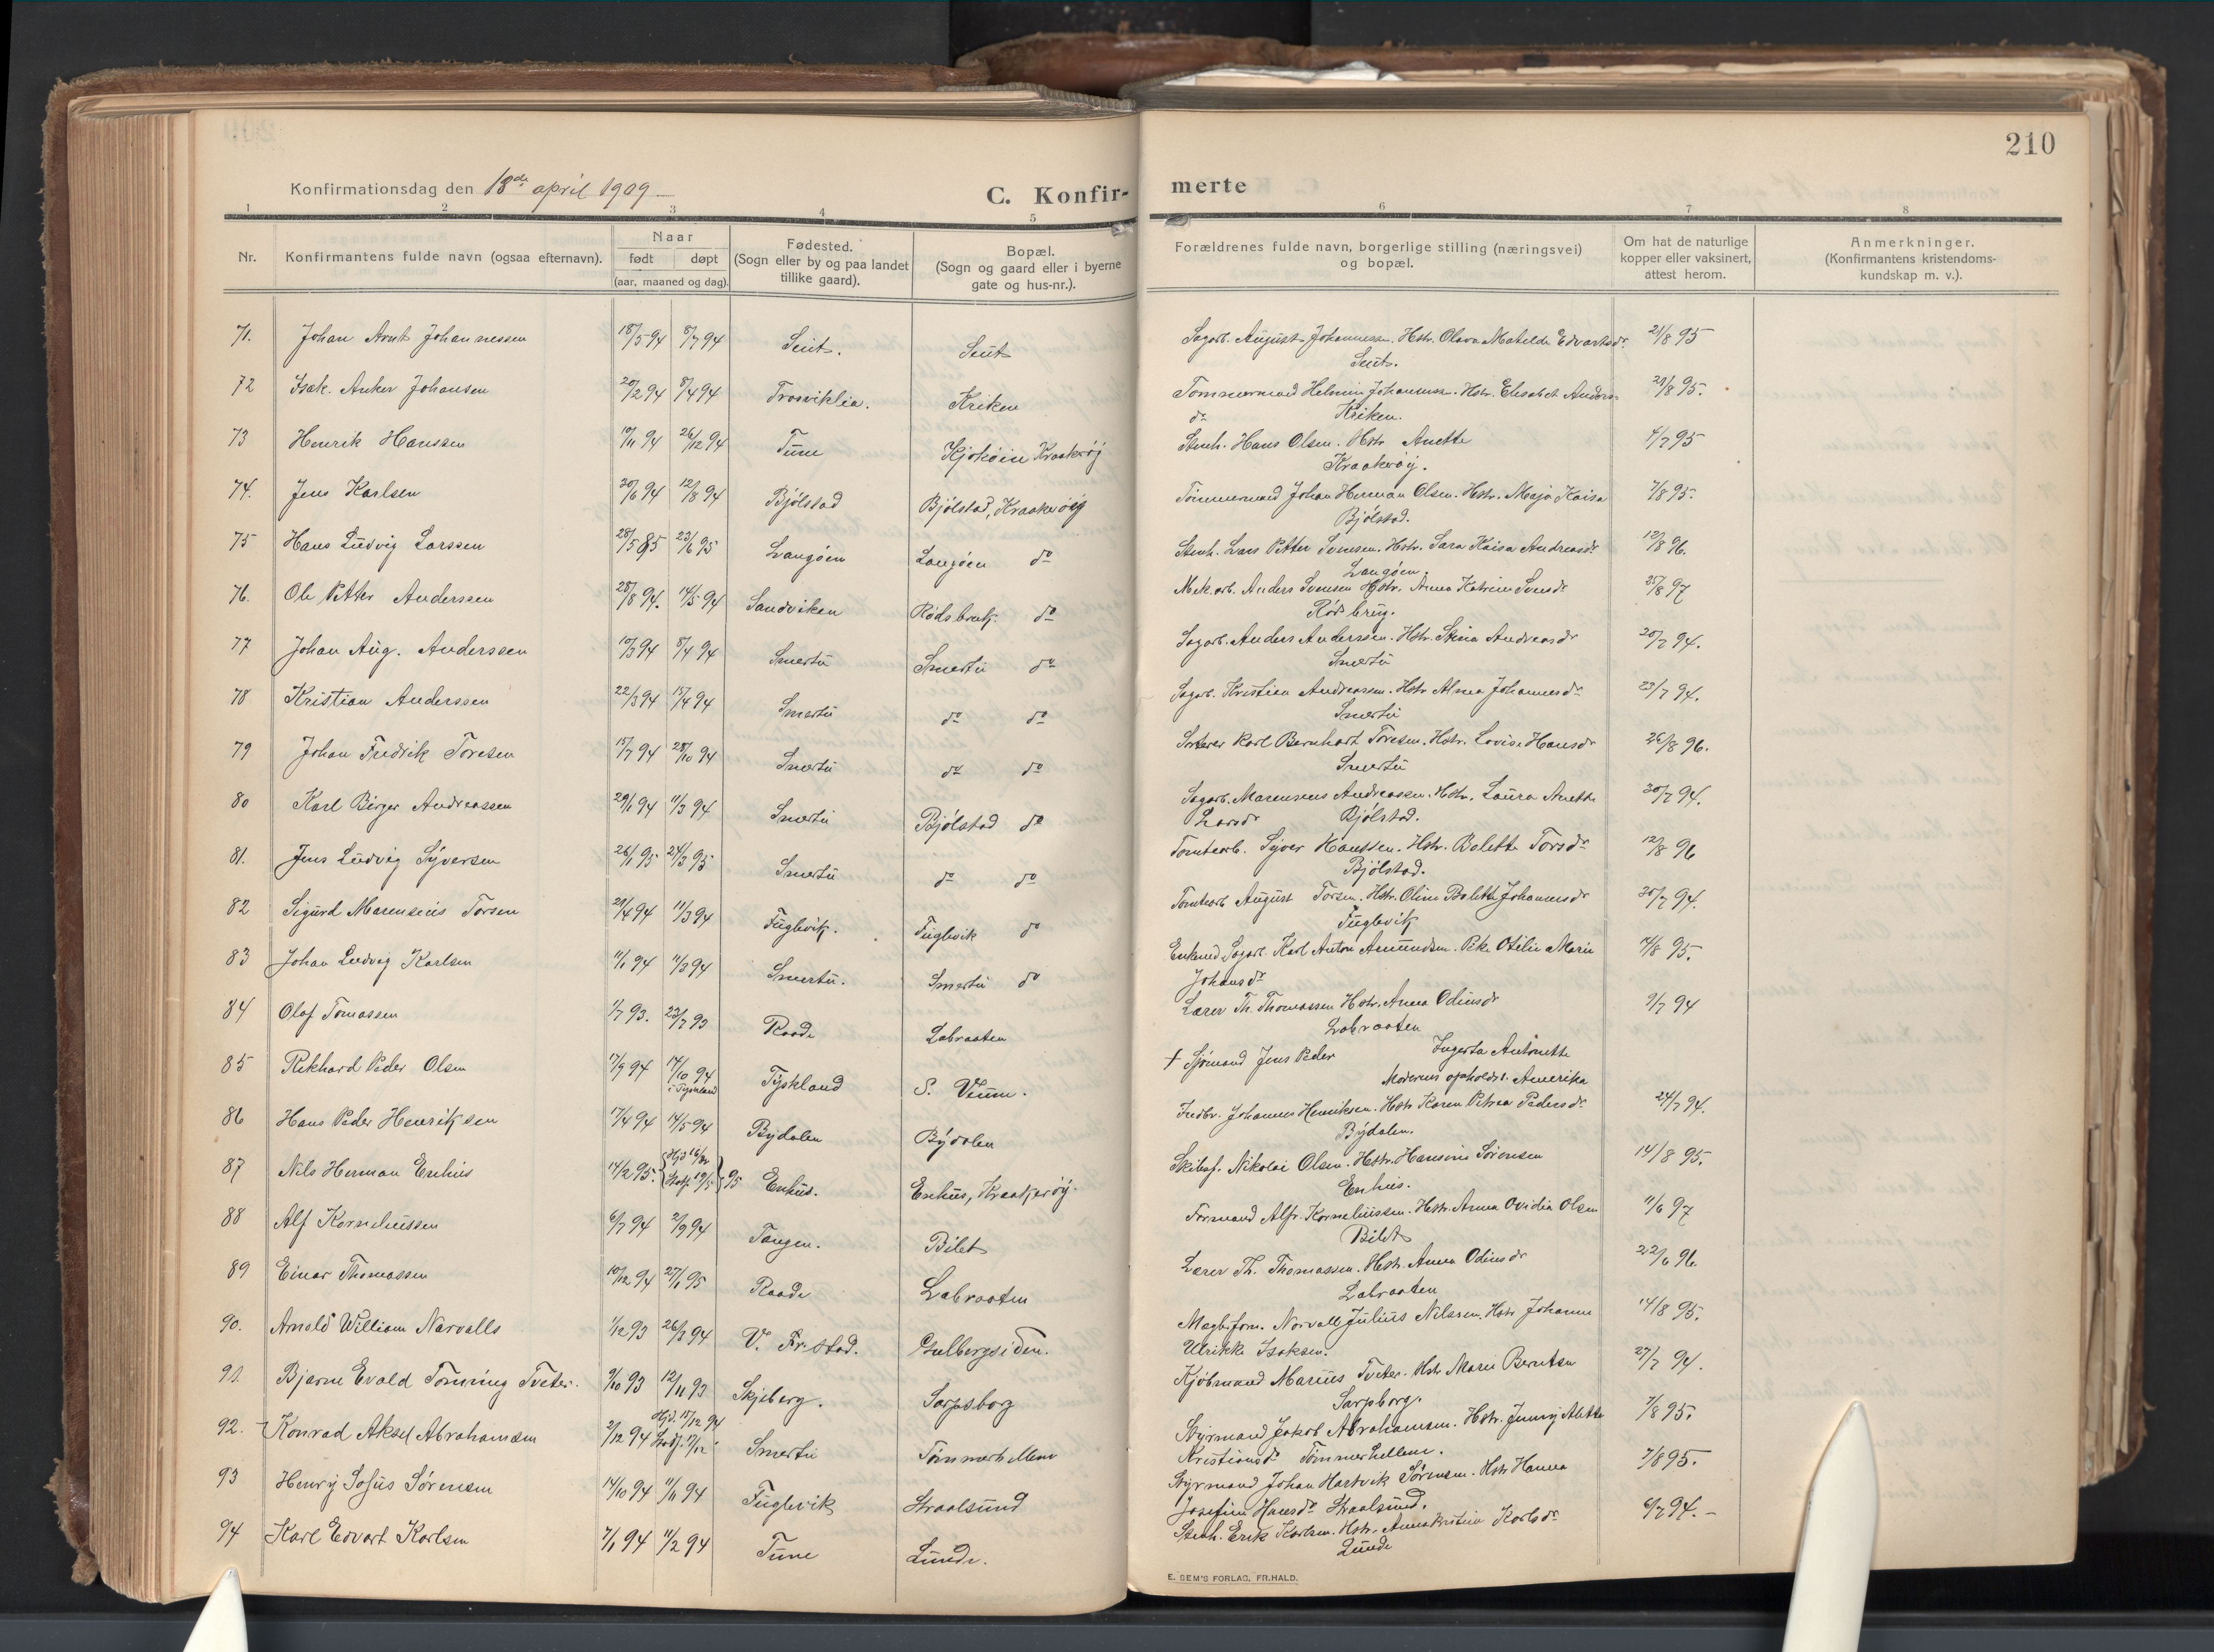 210
Konfirmationsdag den 18de april 1909
C. Konfirmerte
1 2 3 4 5 6 7 8
Nr. Konfirmantens fulde navn (ogsaa efternavn). Naar født døpt (aar, maaned og dag). Fødested. (Sogn eller by og paa landet tillike gaard). Bopæl. (Sogn og gaard eller i byerne gate og hus-nr.). Forældrenes fulde navn, borgerlige stilling (næringsvei) og bopæl. Om hat de naturlige kopper eller vaksinert, attest herom. Anmerkninger. (Konfirmantens kristendomskundskap m. v.).
71. Johan Arnt Johannessen 18/5 94 8/7 94 Seut. Seut Sagarb. August Johannessen. Hstr. Olava Matilde Edvartsdr. 21/8 95
Seut.
72 Isak. Anker Johansen 20/2 94 8/4 94 Trosviklia. Kriken Tømmermand Helmin Johannessen. Hstr. Elisabet Anders- 21/8 95.
dr Kriken.
73 Henrik Hanssen 19/11 94 26/12 94 Tune Kjøkøien Kraakerøy Stenh. Hans Olsen. Hstr Anette 4/7 95
Kraakerøy.
74. Jens Karlsen 20/6 94 12/8 94 Bjølstad Bjølstad, Kraakerøy Tømmermand Johan Herman Olsen. Hstr. Maja Kaisa 7/8 95.
Bjølstad.
75 Hans Ludvig Larssen 28/5 85 23/6 95 Langøen Langøen do Stenh. Lars Petter Svensen. Hstr. Sara Kaisa Andreasdr 12/8 96.
Langøen.
76. Ole Petter Anderssen 28/8 94. 14/5 94 Sandviken Rødsbruk. do Mek. arb. Anders Svensen Hstr. Anna Katrine Svensdr 25/8 97
Rødsbrug.
77 Johan Aug. Anderssen 10/3 94 8/4 94 Smertu Smertu do Sagarb. Anders Anderssen. Hstr. Stina Andreasdr 20/7 94.
Smertu
78 Kristian Anderssen 22/3 94 15/4 94 Smertu do do Sagarb. Kristian Andreassen. Hstr Alma Johannesdr 23/7 94.
Smertu
79 Johan Fredrik Toresen 15/7 94 28/10 94 Smertu do do Sorterer Karl Bernhart Toresen. Hstr. Lovise Hansdr 26/8 96.
Smertu
80 Karl Birger Andreassen 29/1 94 11/3 94 Smertu Bjølstad do Sagarb. Marensius Andreassen. Hstr. Laura Anette 20/7 94.
Larsdr Bjølstad.
81. Jens Ludvig Syversen 26/1 95 24/3 95 Smertu do do Tomtearb. Syver Hanssen. Hstr. Bolette Torsdr 12/8 96
Bjølstad.
82 Sigurd Marensius Torsen 29/4 94 11/3 94 Fuglevik. Fuglevik do Tomtearb August Torsen. Hstr. Oline Bolette Johannesdr 20/7 94.
Fuglevik
83 Johan Ludvig Karlsen 11/1 94 11/3 94 Smertu. Smertu do Enkemd Sagarb. Karl Anton Amundsen. Pike Otilie Marie 14/8 95.
Johansdr
84 Olaf Tomassen 1/7 93. 23/7 93 Raade Labraaten Lærer Th. Thomassen Hstr. Anna Odinsdr 9/7 94
Labraaten
85 Rikhard Peder Olsen 17/9 94 14/10 94 i Tyskland Tyskland S. Veum. † Sjømand Jens Peder Ingerta Antonette
Moderens opholdst. Amerika
86 Hans Peder Henriksen 17/4 94 14/5 94 Bydalen Bydalen Fredbr. Johannes Henriksen. Hstr Karen Petrea Pedersdr 24/7 94.
Bydalen.
87 Nils Herman Enhus 14/2 95. Hjd 16/ Stadf. 19/5 95 Enhus. Enhus, Kraakerøy. Skibsf. Nikolai Olsen. Hstr. Hansine Sørensen 14/8 95.
Enhus.
88 Alf Korneliussen 6/7 94 2/9 94 Tangen. Bilet Formand Alfr. Korneliussen. Hstr. Anna Ovidia Olsen 11/6 97
Bilet
89 Einar Thomassen 10/12 94 27/1 95 Raade Labraaten Lærer Th. Thomassen. Hstr. Anna Odinsdr 22/6 96.
Labraaten
90. Arnold William Narvalls 1/12 93 26/3 94 V. Fr.stad. Gulbergsiden. Norvall Julius Nilssen. Hstr Johanne 14/8 95.
Ulrikke Isaksen.
91. Bjarne Evald Tømring Tveter. 9/10 93 12/11 93 Skjeberg. Sarpsborg Kjøbmand Marius Tveter. Hstr Marie Berntsen 27/7 94.
Sarpsborg.
92. Konrad Aksel Abrahamsen 2/12 94 Hjd. 15/12 94 Stadf. 17/12 Smertu Tømmerhellene Styrmand Jakob Abrahamsen. Hstr. Jenny Alette 7/8 95.
Kristiansdr Tømmerhellene.
93 Henry Sofus Sørensen 14/10 94 11/11 94 Fuglevik Straalsund Styrmand Johan Hartvik Sørensen. Hstr Hanna 7/8 95.
Josefine Hansdr Straalsund.
94 Karl Edvart Karlsen 7/1 94 11/2 94 Tune Lunde. Stenh. Erik Karlsen. Hstr. Anna Kristine Karlsdr 6/7 94. –
Lunde
E. SEM'S FORLAG, FR.HALD.